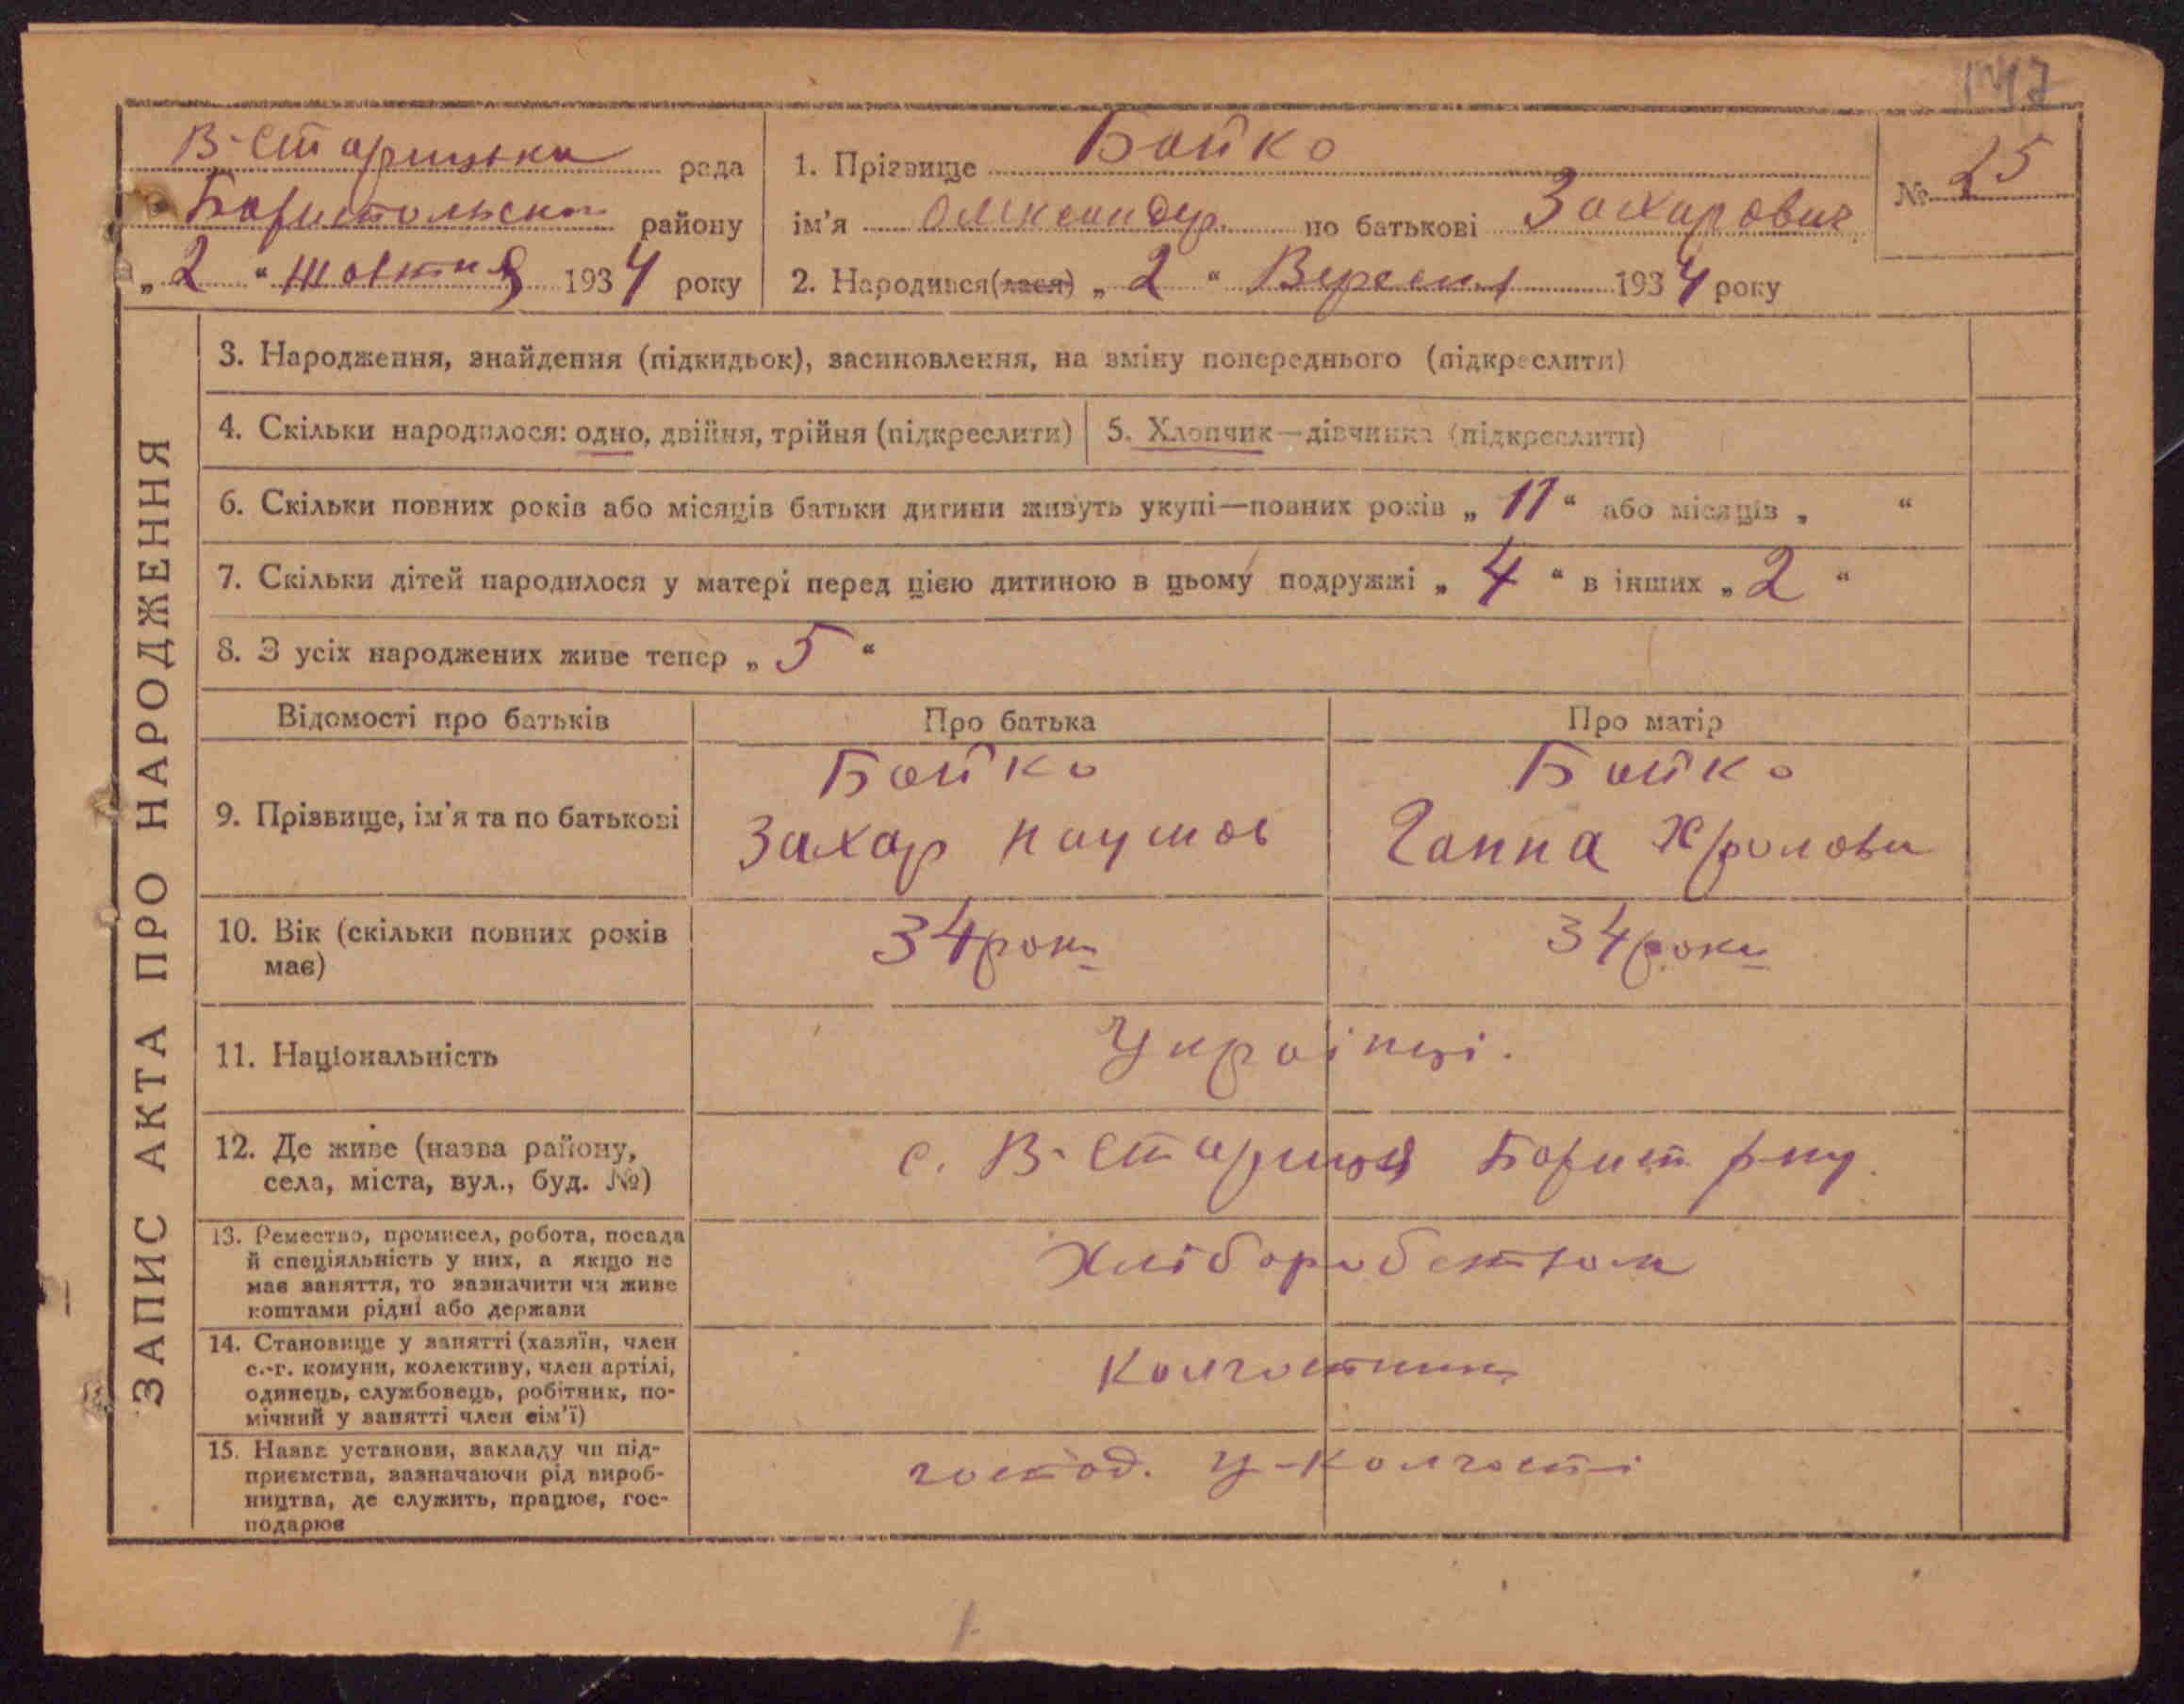 147
В-Старицька рада
Бориспольськ району
„ 2 “ жовтня 1934 року
1. Прізвище Бойко
ім'я Олександр. по батькові Захарович
2. Народився(лася) „ 2 “ Вересня 1934 року
№ 25
ЗАПИС АКТА ПРО НАРОДЖЕННЯ
3. Народження, знайдення (підкидьок), засиновлення, на зміну попереднього (підкреслити)
4. Скільки народилося: одно, двійня, трійня (підкреслити)
5. Хлопчик—дівчинка (підкреслити)
6. Скільки повних років або місяців батьки дитини живуть укупі—повних років „ 11 “ або місяців „ “
7. Скільки дітей народилося у матері перед цією дитиною в цьому подружжі „ 4 “ в інших „ 2 “
8. З усіх народжених живе тепер „ 5 “
Відомості про батьків Про батька Про матір
9. Прізвище, ім'я та по батькові
Бойко
Захар Наумов
Бойко
Ганна Хролови
10. Вік (скільки повних років
має)
34 роки
34 роки
11. Національність
Українці.
12. Де живе (назва району,
села, міста, вул., буд. №)
с. В-Стариця Борисп р-ну.
13. Ремество, промисел, робота, посада
й спеціяльність у них, а якщо не
має заняття, то зазначити чи живе
коштами рідні або держави
Хліборобством
14. Становище у занятті (хазяїн, член
с.-г. комуни, колективу, член артілі,
одинець, службовець, робітник, по-
мічний у занятті член сім'ї)
Колгоспник
15. Назва установи, закладу чи під-
приємства, зазначаючи рід вироб-
ництва, де служить, працює, гос-
подарює
господ. у-колгоспі